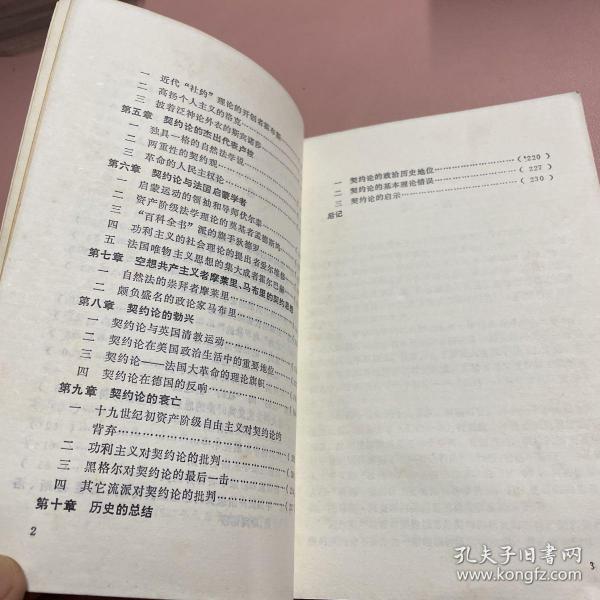 一 近代“社约”理论的开创者霍布斯
二 高扬个人主义的洛克
三 披着泛神论外衣的斯宾诺莎
第五章 契约论的杰出代表卢梭
一 独具一格的自然法学说
二 两重性的契约观
三 革命的人民主权论
第六章 契约论与法国启蒙学者
一 启蒙运动的领袖和导师伏尔泰
二 资产阶级法学理论的奠基者孟德斯鸠
三 “百科全书”派的旗手狄德罗
四 功利主义的社会理论的提出者爱尔维修
五 法国唯物主义思想的集大成者霍尔巴赫
第七章 空想共产主义者摩莱里、马布里的契约思想
一 自然法的崇拜者摩莱里
二 颇负盛名的政论家马布里
第八章 契约论的勃兴
一 契约论与英国清教运动
二 契约论在美国政治生活中的重要地位
三 契约论——法国大革命的理论旗帜
四 契约论在德国的反响
第九章 契约论的衰亡
一 十九世纪初资产阶级自由主义对契约论的
背弃
二 功利主义对契约论的批判
三 黑格尔对契约论的最后一击
四 其它流派对契约论的批判
第十章 历史的总结
2
一 契约论的政治历史地位 (220)
二 契约论的基本理论错误 (227)
三 契约论的启示 (230)
后记
3
孔夫子旧书网
www.kongfz.com